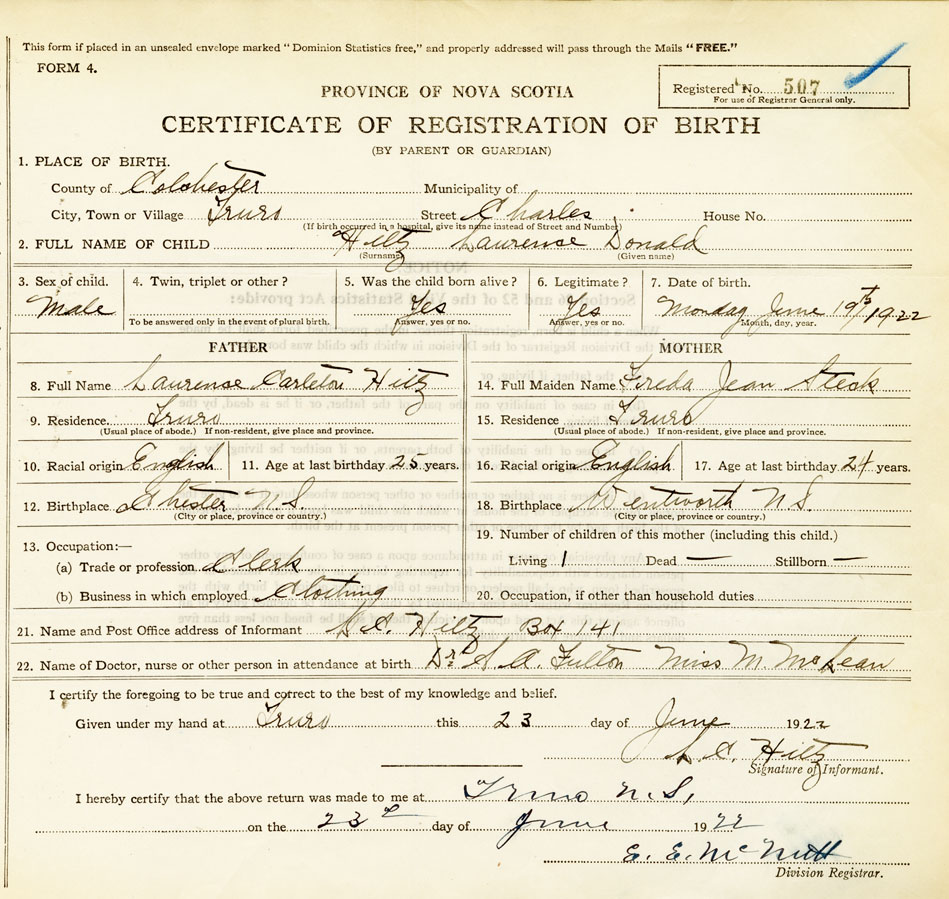 This form if placed in an unsealed envelope marked "Dominion Statistics free," and properly addressed will pass through the Mails "FREE."
FORM 4.
Registered No. 507
For use of Registrar General only.
PROVINCE OF NOVA SCOTIA
CERTIFICATE OF REGISTRATION OF BIRTH
(BY PARENT OR GUARDIAN)
1. PLACE OF BIRTH.
County of Colchester Municipality of
City, Town or Village Truro Street Charles House No.
(If birth occurred in a hospital, give its name instead of Street and Number)
2. FULL NAME OF CHILD Hiltz Laurense Donald
(Surname) (Given name)
3. Sex of child. 4. Twin, triplet or other? 5. Was the child born alive? 6. Legitimate? 7. Date of birth.
Male Yes Yes Monday June 19th 1922
To be answered only in the event of plural birth. Answer, yes or no. Answer, yes or no. Month, day, year.
FATHER MOTHER
8. Full Name Laurense Carleton Hiltz 14. Full Maiden Name Freda Jean Steck
9. Residence. Truro 15. Residence Truro
(Usual place of abode.) If non-resident, give place and province. (Usual place of abode.) If non-resident, give place and province.
10. Racial origin English 11. Age at last birthday 25 years. 16. Racial origin English 17. Age at last birthday 24 years.
12. Birthplace Chester N.S. 18. Birthplace Wentworth N.S.
(City or place, province or country.) (City or place, province or country.)
13. Occupation:— 19. Number of children of this mother (including this child.)
(a) Trade or profession Clerk Living 1 Dead — Stillborn —
(b) Business in which employed Clothing 20. Occupation, if other than household duties
21. Name and Post Office address of Informant L.C. Hiltz Box 141
22. Name of Doctor, nurse or other person in attendance at birth Dr. S. A. Fulton Miss M McLean
I certify the foregoing to be true and correct to the best of my knowledge and belief.
Given under my hand at Truro this 23 day of June 1922
L. C. Hiltz
Signature of Informant.
I hereby certify that the above return was made to me at Truro N.S.
on the 23d day of June 1922
E. E. McNutt
Division Registrar.